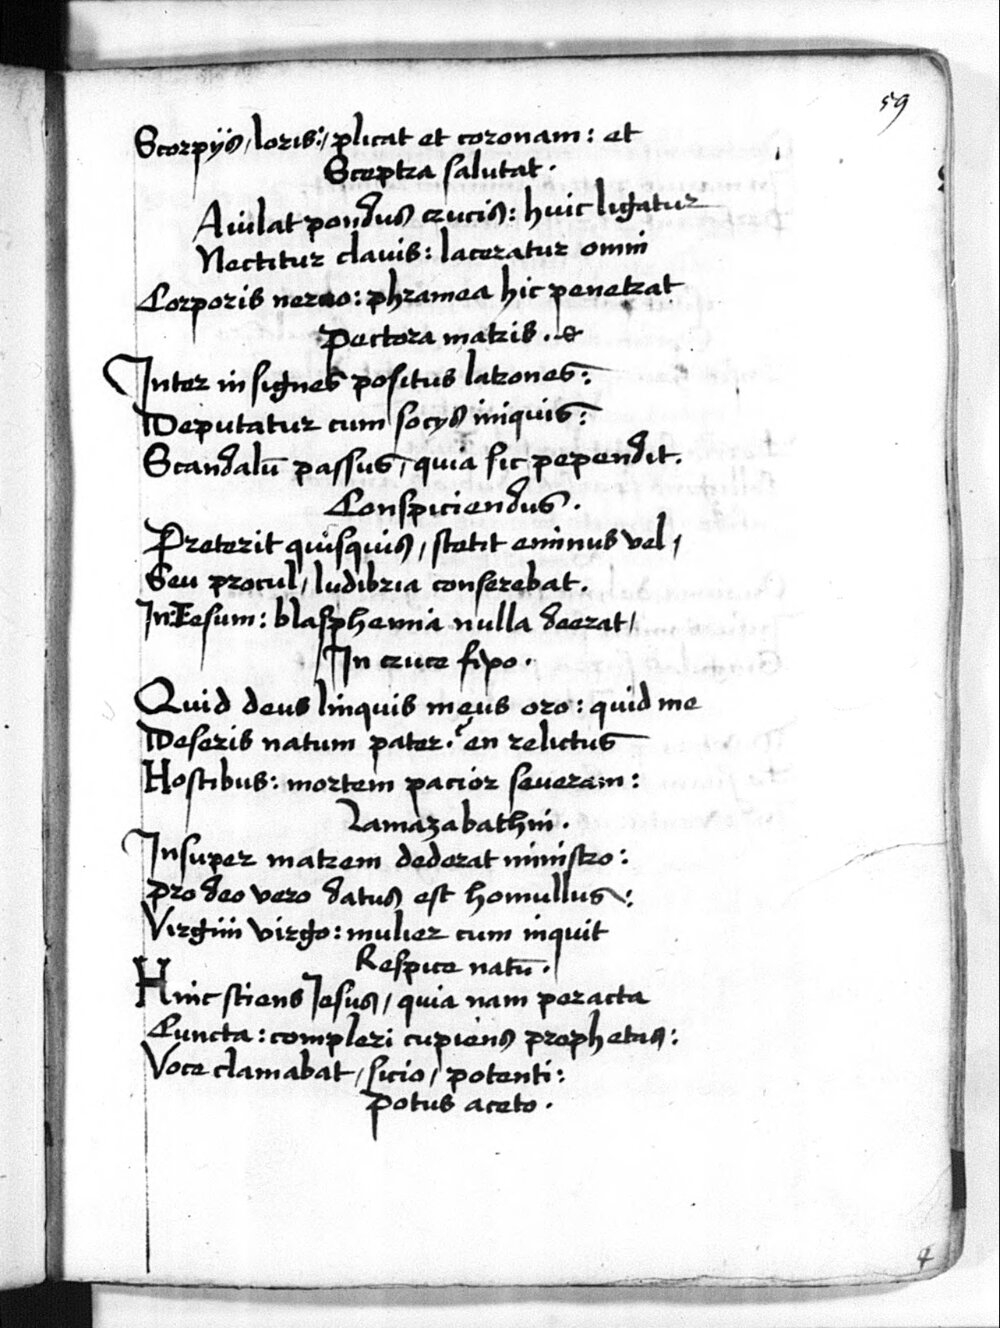 59
Scorpijs, loris:, plicat et coronam: et
Sceptra salutat.
Aiulat pondus crucis: huic ligatur
Nectitur clauis: laceratur omni
Corporis neruo: phramea hic penetrat
Pectora matris.
Inter insignes positus latrones:
Deputatur cum socijs iniquis:
Scandalū passus, quia sic pependit.
Conspiciendus.
Preterit quisquis, stetit eminus vel,
Seu procul, ludibria conferebat.
In Iesum: blasphemia nulla deerat,
In cruce fixo.
Quid deus linquis meus oro: quid me
Deseris natum pater. en relictus
Hostibus: mortem pacior seueram:
Lamazabathni.
Insuper matrem dederat ministro:
Pro deo vero datus est homullus:
Virgini virgo: mulier cum inquit
Respice natū.
Hinc sciens Jesus, quia nam peracta
Cuncta: compleri cupiens prophetas:
Voce clamabat, sicio, potenti:
Potus aceto.
4